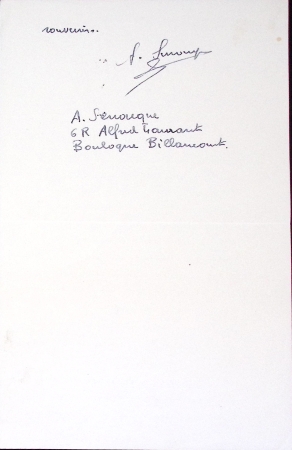 souvenirs.
A. Senouque
A. Sénouque
6 R Alfred Laurant
Boulogne Billancourt.